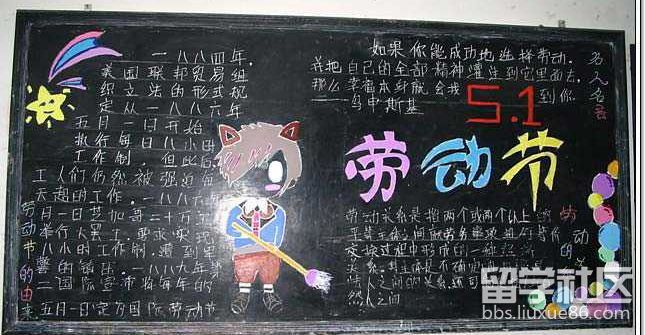 一八八四年，
美国联邦贸易组
织立法的形式规
定从一八八六年
五月一日开始
执行每日八小时
工作制，但此后
工人们仍然被强迫每
天超的工作。一八八
月一日芝加哥二十万
举行大罢工，要求实现
八小时工作制，遭到
的镇压。一八八九年第
二国际宣布将每年的
五月一日定为国际劳动节
劳动节的由来
如果你能成功地选择劳动，
并把自己的全部精神灌注到它里面去，
那么幸福本身就会找
到你
5.1
名人名言
劳动节
劳动关系是指两个或两个以上的
交换过程中形成的一种经济
然人之间
留学社区
bbs.liuxue86.com